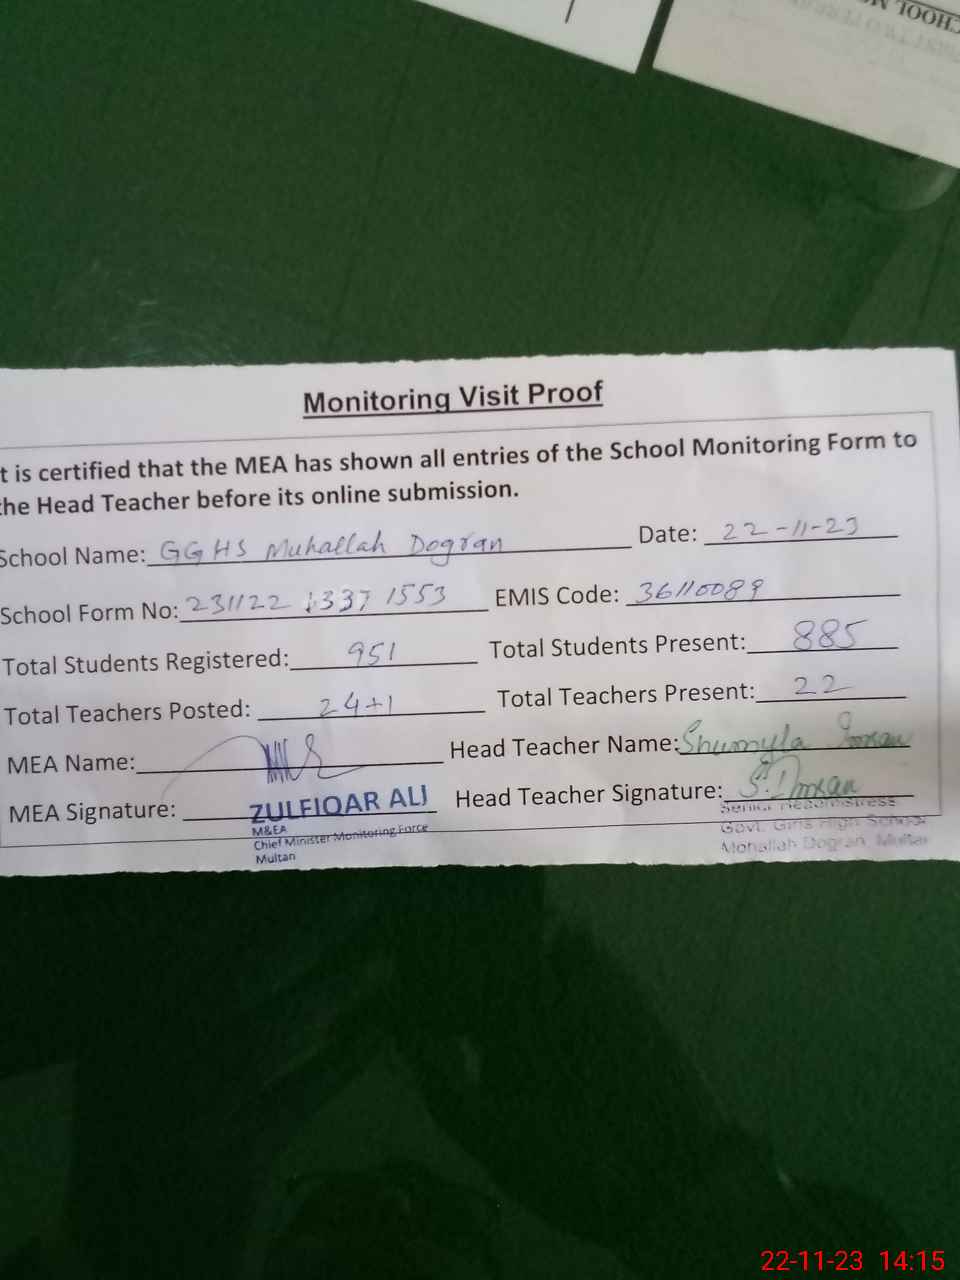 CHOOL
Monitoring Visit Proof
t is certified that the MEA has shown all entries of the School Monitoring Form to
the Head Teacher before its online submission.
School Name: GGHS Muhallah Dogran Date: 22-11-23
School Form No: 231122 1337 1553 EMIS Code: 36110089
Total Students Registered: 951 Total Students Present: 885
Total Teachers Posted: 24+1 Total Teachers Present: 22
MEA Name: Head Teacher Name: Shumyla Imran
MEA Signature: ZULFIQAR ALI Head Teacher Signature: S. Imran
M&EA
Chief Minister Monitoring Force
Multan
Senior Headmistress
Govt. Girls High School
Mohallah Dogran, Multan
22-11-23 14:15